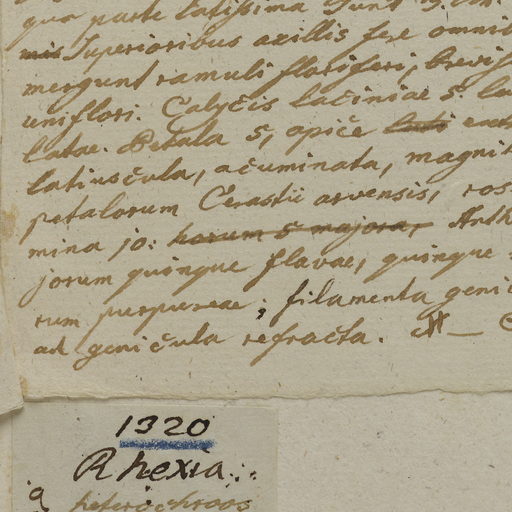 qua parte latissima sunt
mis superioribus axillis fere omnib
mergunt ramuli floriferi, brevis
uniflori. Calycis laciniae 5 la
latae. Petala 5, apice lati
latiuscula, acuminata, magnit
petalorum Cerastii arvensis, ros
mina 10: horum 5 majora, Anth
jorum quinque flavae, quinque
rum purpureae; filamenta genic
ad genicula refracta.
1320
Rhexia
a heterochroos